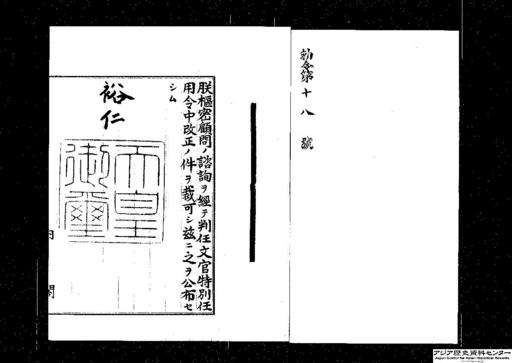 勅令第十八號
朕樞密顧問ノ諮詢ヲ經テ判任文官特別任
用令中改正ノ件ヲ裁可シ茲ニ之ヲ公布セ
シム
裕仁
天皇
御璽
内
閣
アジア歴史資料センター
Japan Center for Asian Historical Records